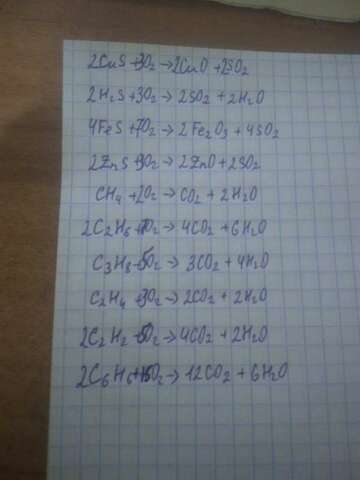 2CuS+3O₂→2CuO+2SO₂
2H₂S+3O₂→2SO₂+2H₂O
4FeS+7O₂→2Fe₂O₃+4SO₂
2ZnS+3O₂→2ZnO+2SO₂
CH₄+2O₂→CO₂+2H₂O
2C₂H₆+7O₂→4CO₂+6H₂O
C₃H₈+5O₂→3CO₂+4H₂O
C₂H₄+3O₂→2CO₂+2H₂O
2C₂H₂+5O₂→4CO₂+2H₂O
2C₆H₆+15O₂→12CO₂+6H₂O